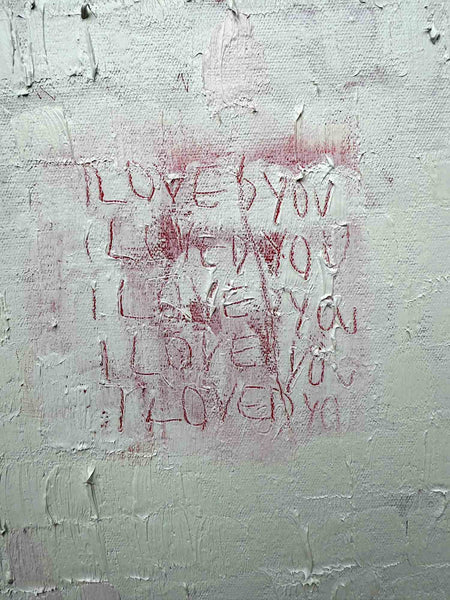 I LOVED YOU
I LOVED YOU
I LOVE YOU
I LOVE YOU
I LOVED YO